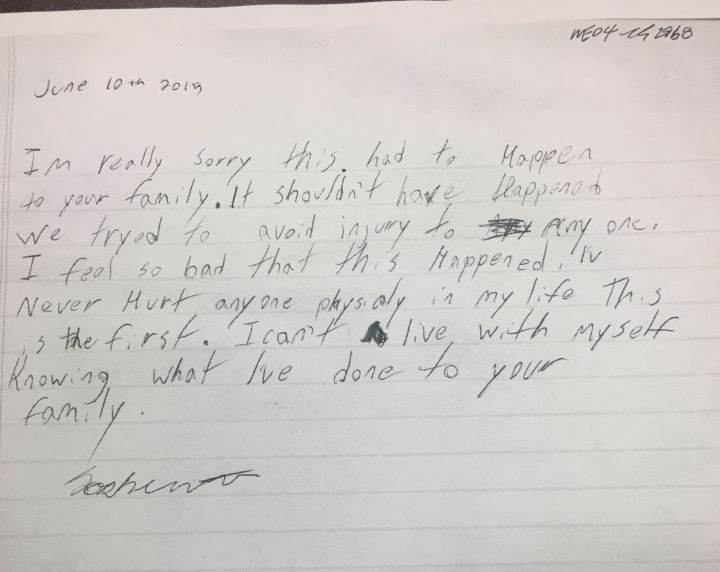 WE04
June 10th 2019
Im really sorry this. had to Happen
to your family. It shouldn't have Happened
We tryed to avoid injury to Any one.
I feel so bad that this Happened. Iv
Never Hurt anyone physicly in my life This
is the first. I can't live with myself
Knowing what I've done to your
family.